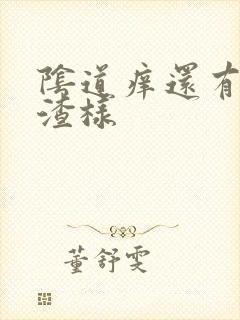 陰道痒還有
渣樣
董舒雯